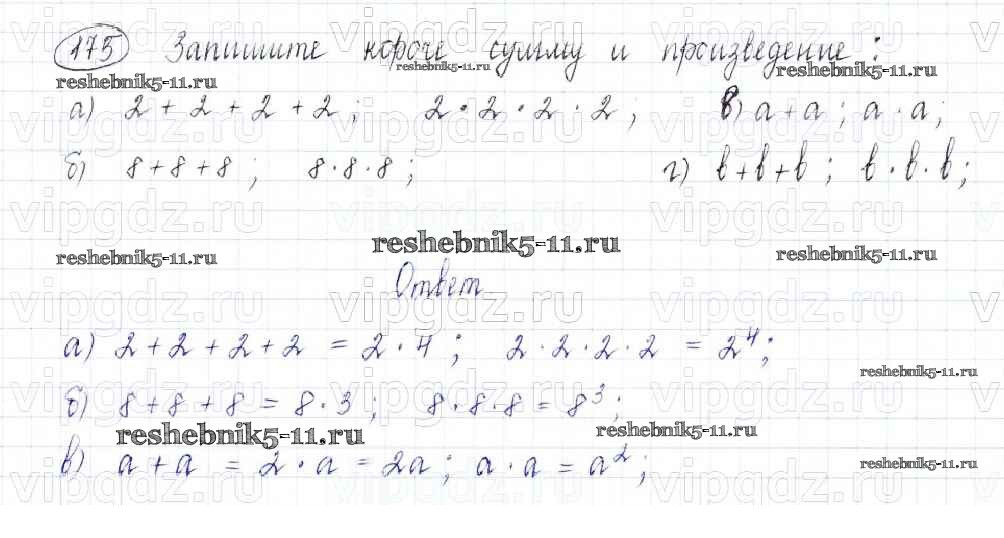 175 Запишите короче сумму и произведение:
reshebnik5-11.ru reshebnik5-11.ru reshebnik5-11.ru
а) 2 + 2 + 2 + 2 ; 2 · 2 · 2 · 2 ; в) a + a ; a · a ;
б) 8 + 8 + 8 ; 8 · 8 · 8 ; г) b + b + b ; b · b · b ;
reshebnik5-11.ru reshebnik5-11.ru reshebnik5-11.ru
Ответ
а) 2 + 2 + 2 + 2 = 2 · 4 ; 2 · 2 · 2 · 2 = 2⁴ ;
reshebnik5-11.ru
б) 8 + 8 + 8 = 8 · 3 ; 8 · 8 · 8 = 8³ ;
reshebnik5-11.ru reshebnik5-11.ru
в) a + a = 2 · a = 2a ; a · a = a² ;
reshebnik5-11.ru
vipgdz.ru